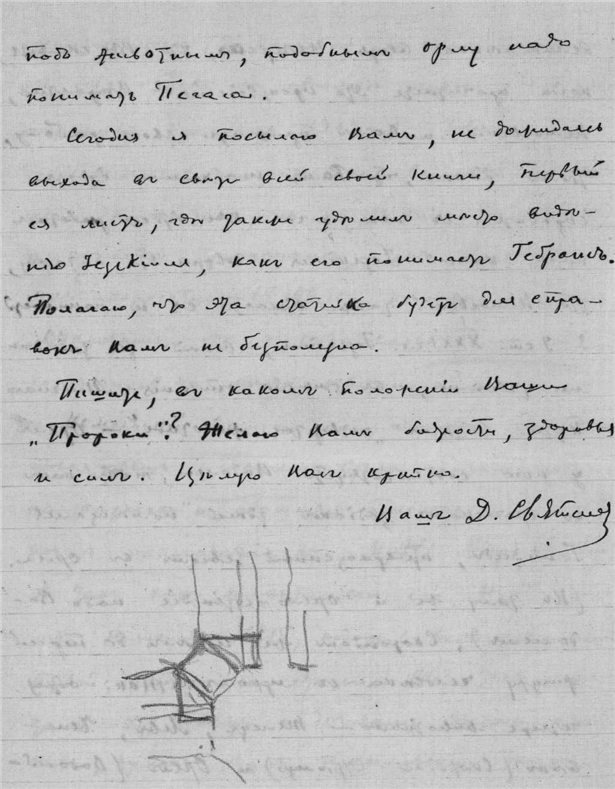 подъ животнымъ, подобнымъ орлу надо
понимать Пегаса.
Сегодня я посылаю Вамъ, не дожидаясь
выхода въ светъ всей своей книги, первый
ея листъ, где также уделилъ место виде-
нiю Iезекiиля, какъ его понимаетъ Гебгансъ.
Полагаю, что эта статейка будетъ для спра-
вокъ Вамъ не безполезна.
Пишите, въ какомъ положенiи Ваши
„Пророки“? Желаю Вамъ бодрости, здоровья
и силъ. Цѣлую Васъ крепко.
Вашъ Д. Святскiй